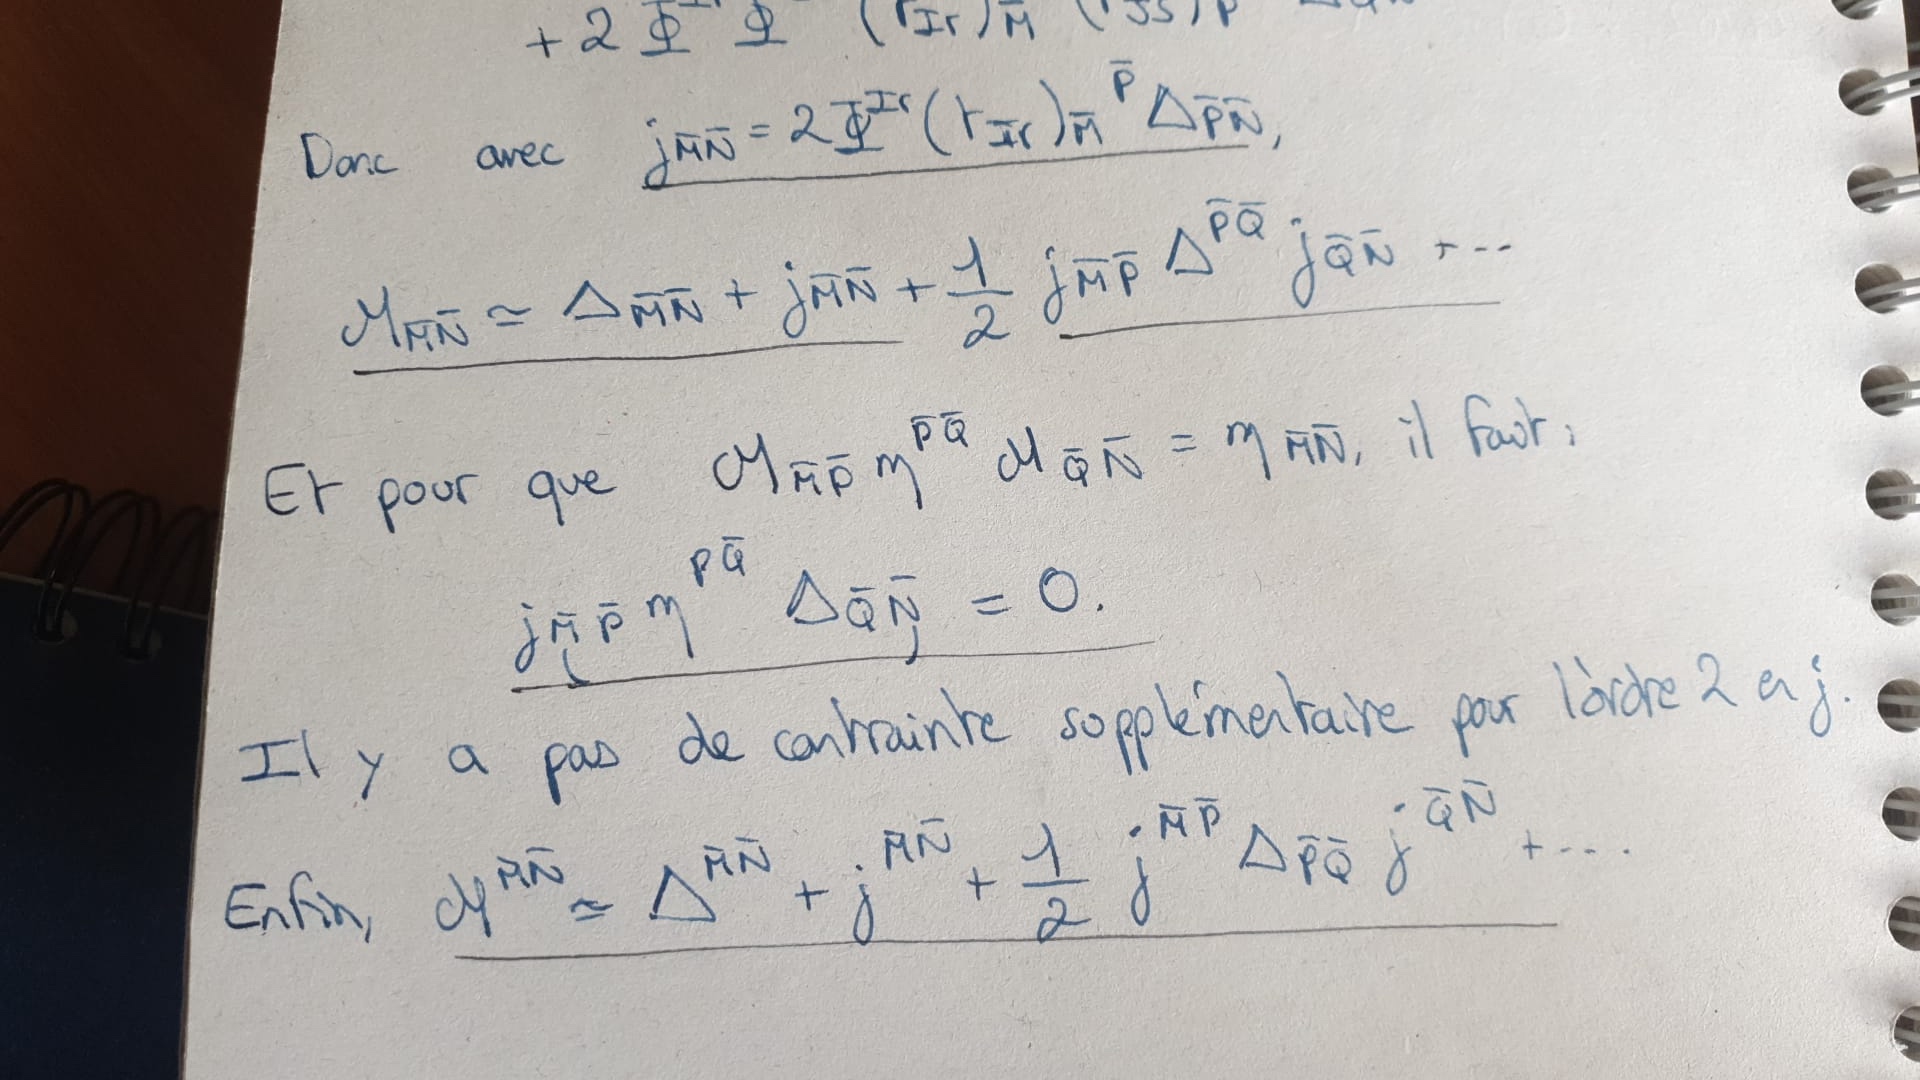 + 2 Φ Φ (r_{Ir})_{M̄}
Donc avec j_{M̄N̄} = 2 Φ^{Ir} (r_{Ir})_{M̄}^{P̄} Δ_{P̄N̄},
M_{M̄N̄} ≃ Δ_{M̄N̄} + j_{M̄N̄} + 1/2 j_{M̄P̄} Δ^{P̄Q̄} j_{Q̄N̄} + ...
Et pour que M_{M̄P̄} η^{P̄Q̄} M_{Q̄N̄} = η_{M̄N̄}, il faut :
j_{(M̄P̄} η^{PQ̄} Δ_{Q̄N̄)} = 0.
Il y a pas de contrainte supplémentaire pour l'ordre 2 en j.
Enfin, M^{M̄N̄} ≃ Δ^{M̄N̄} + j^{M̄N̄} + 1/2 j^{M̄P̄} Δ_{P̄Q̄} j^{Q̄N̄} + ....